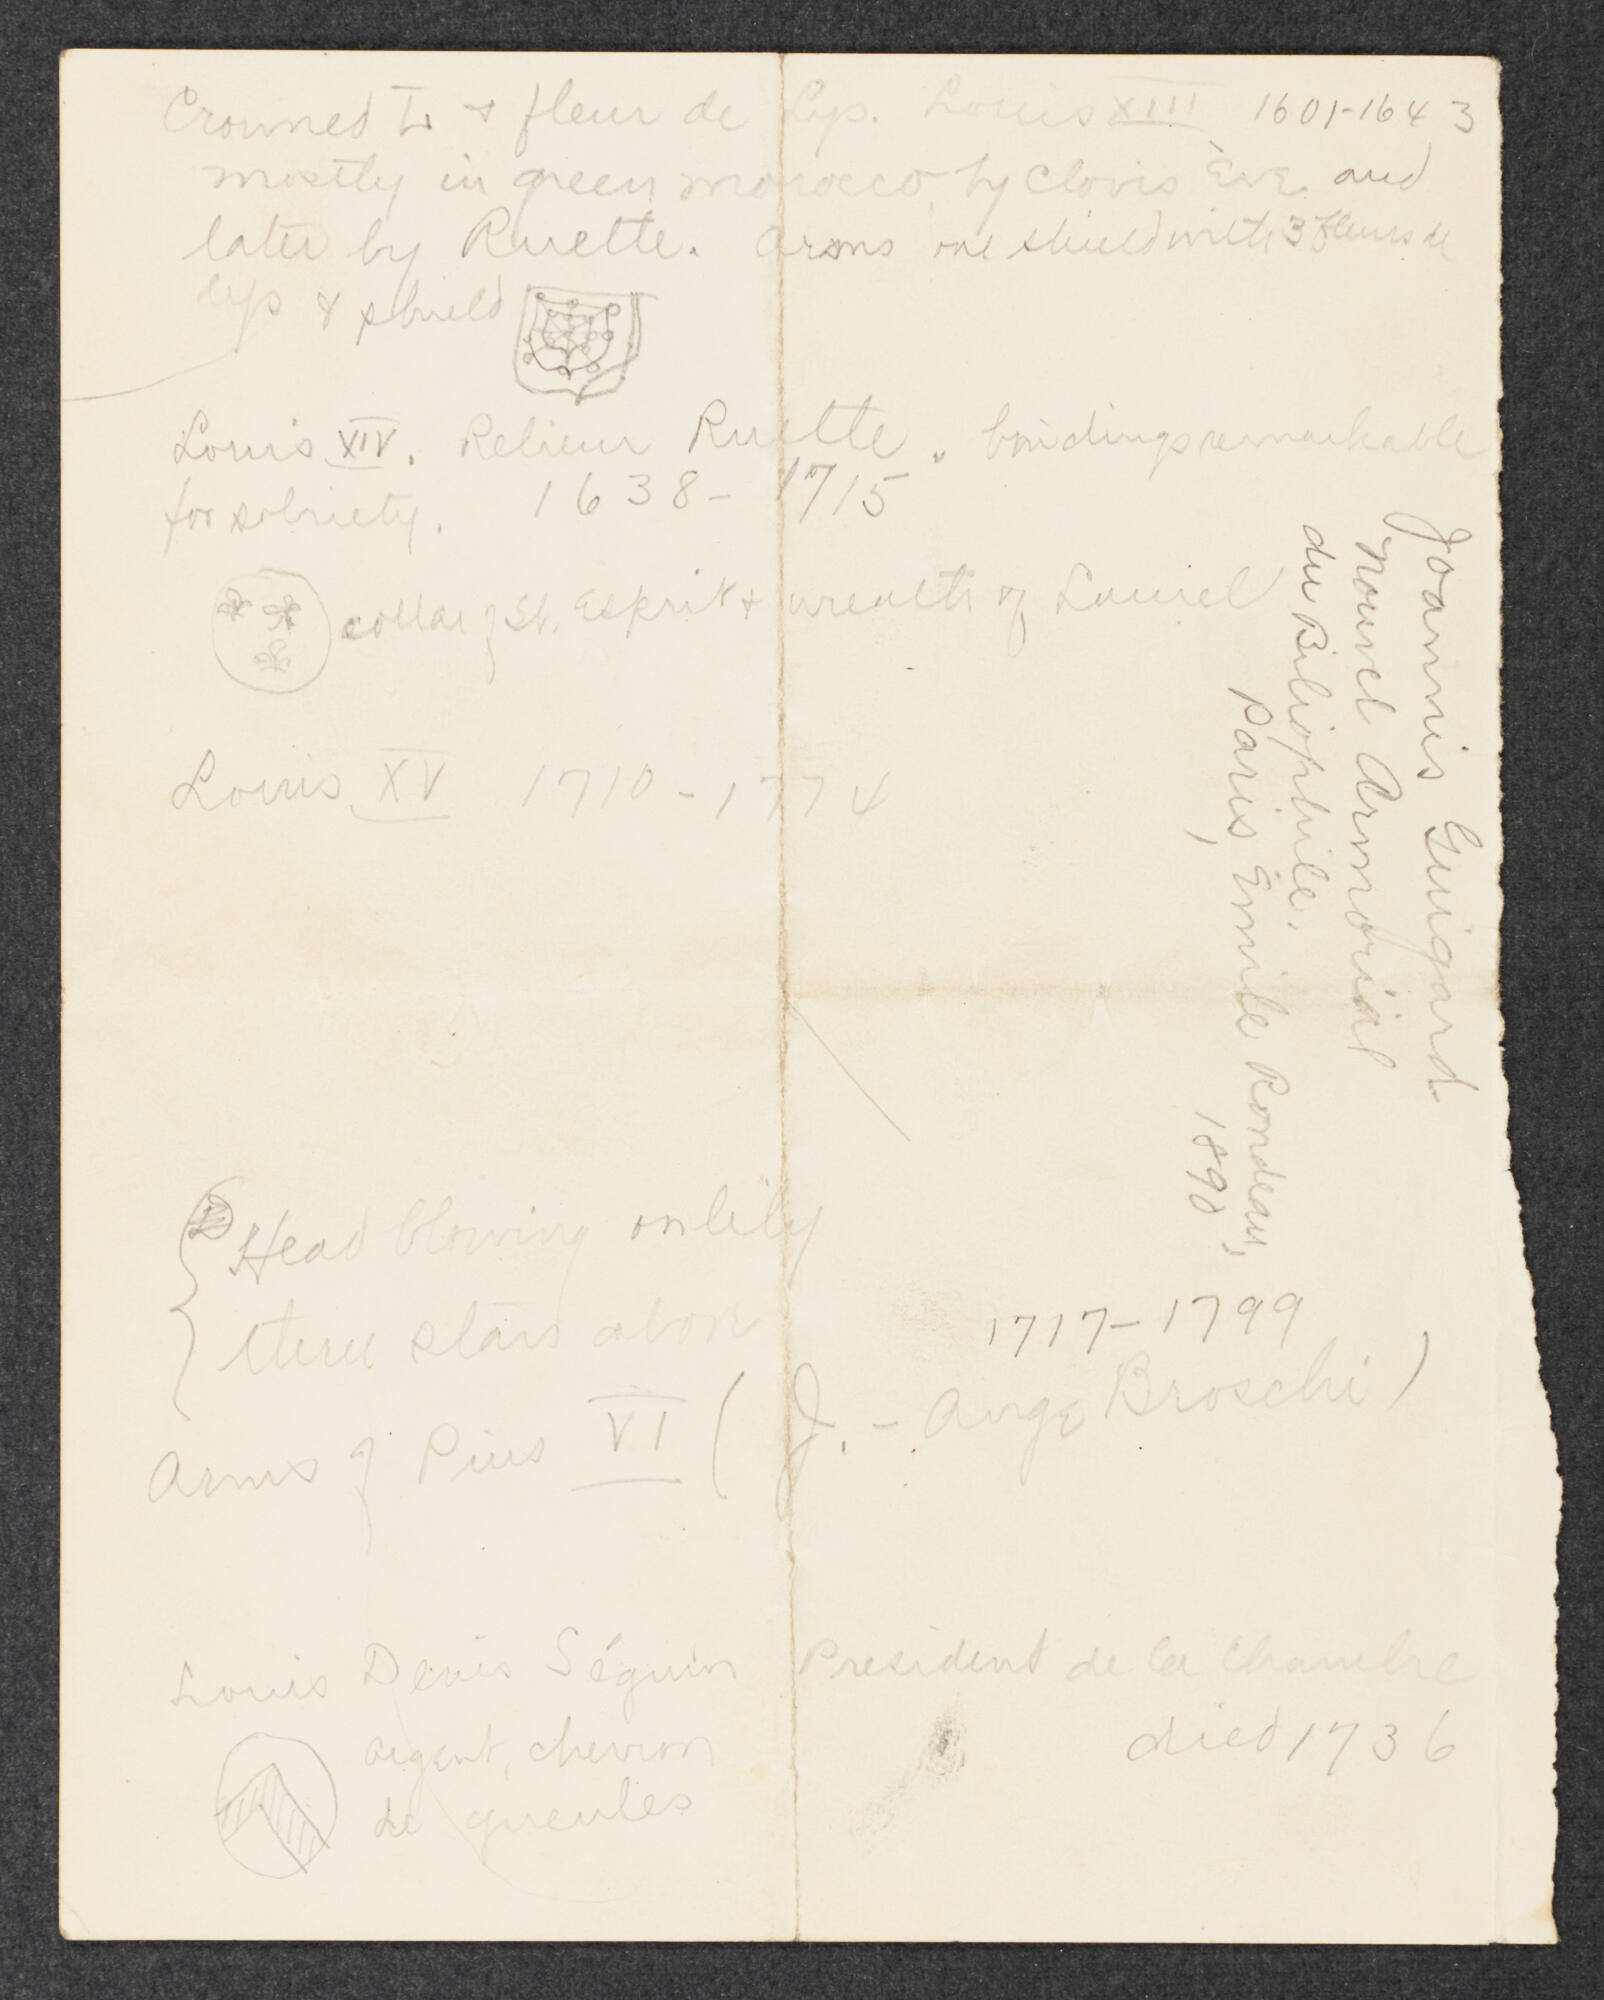 Crowned L & fleur de Lys. Louis XIII, 1601-1643
mostly in green morocco, by Clovis Eve and
later by Ruette. Arms one shield with 3 fleurs de
lys & shield
Louis XIV. Relieur Ruette. bindings remarkable
for sobriety. 1638-1715
collar of St. Esprit & wreath of Laurel
Louis XV 1710-1774
Joannis Guigard
Nouvel Armorial
du Bibliophile.
Paris, Emile Rondeau,
1890
Head blowing on lily
three stars above
1717-1799
Arms of Pius VI (J.-Ange Broschi)
Louis Denis Séguin President de la Chambre
argent, chevron died 1736
de gueules